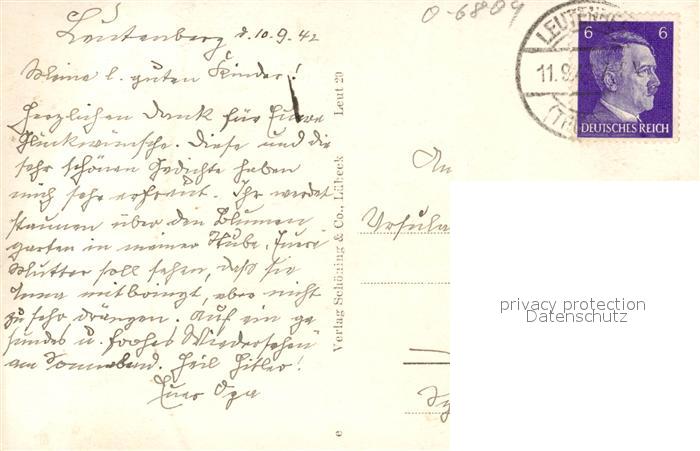 Leutenberg d. 10.9.42
Meine l. guten Kinder!
Herzlichen Dank für Eure
Glückwünsche. Diese und die
sehr schönen Gedichte haben
mich sehr erfreut. Ihr werdet
staunen über den Blumen
garten in meiner Stube. Eure
Mutter soll sehen, daß sie
mitbringt, aber nicht
zu sehr drängen. Auf ein ge
sundes u. frohes Wiedersehen
am Sonnabend. Heil Hitler!
Euer Opa
Verlag Schöning & Co., Lübeck Leut 20
e
0-6809
LEUTENBE
11.9.4
(TH
6 6
DEUTSCHES REICH
An
Ursula
privacy protection
Datenschutz